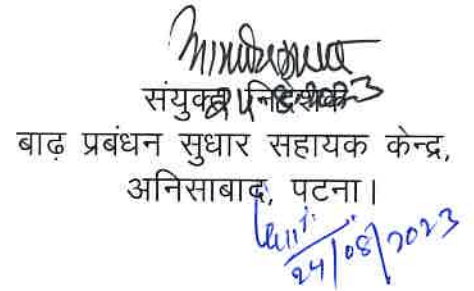 संयुक्त निदेशक
बाढ़ प्रबंधन सुधार सहायक केन्द्र,
अनिसाबाद, पटना।
24/08/2023